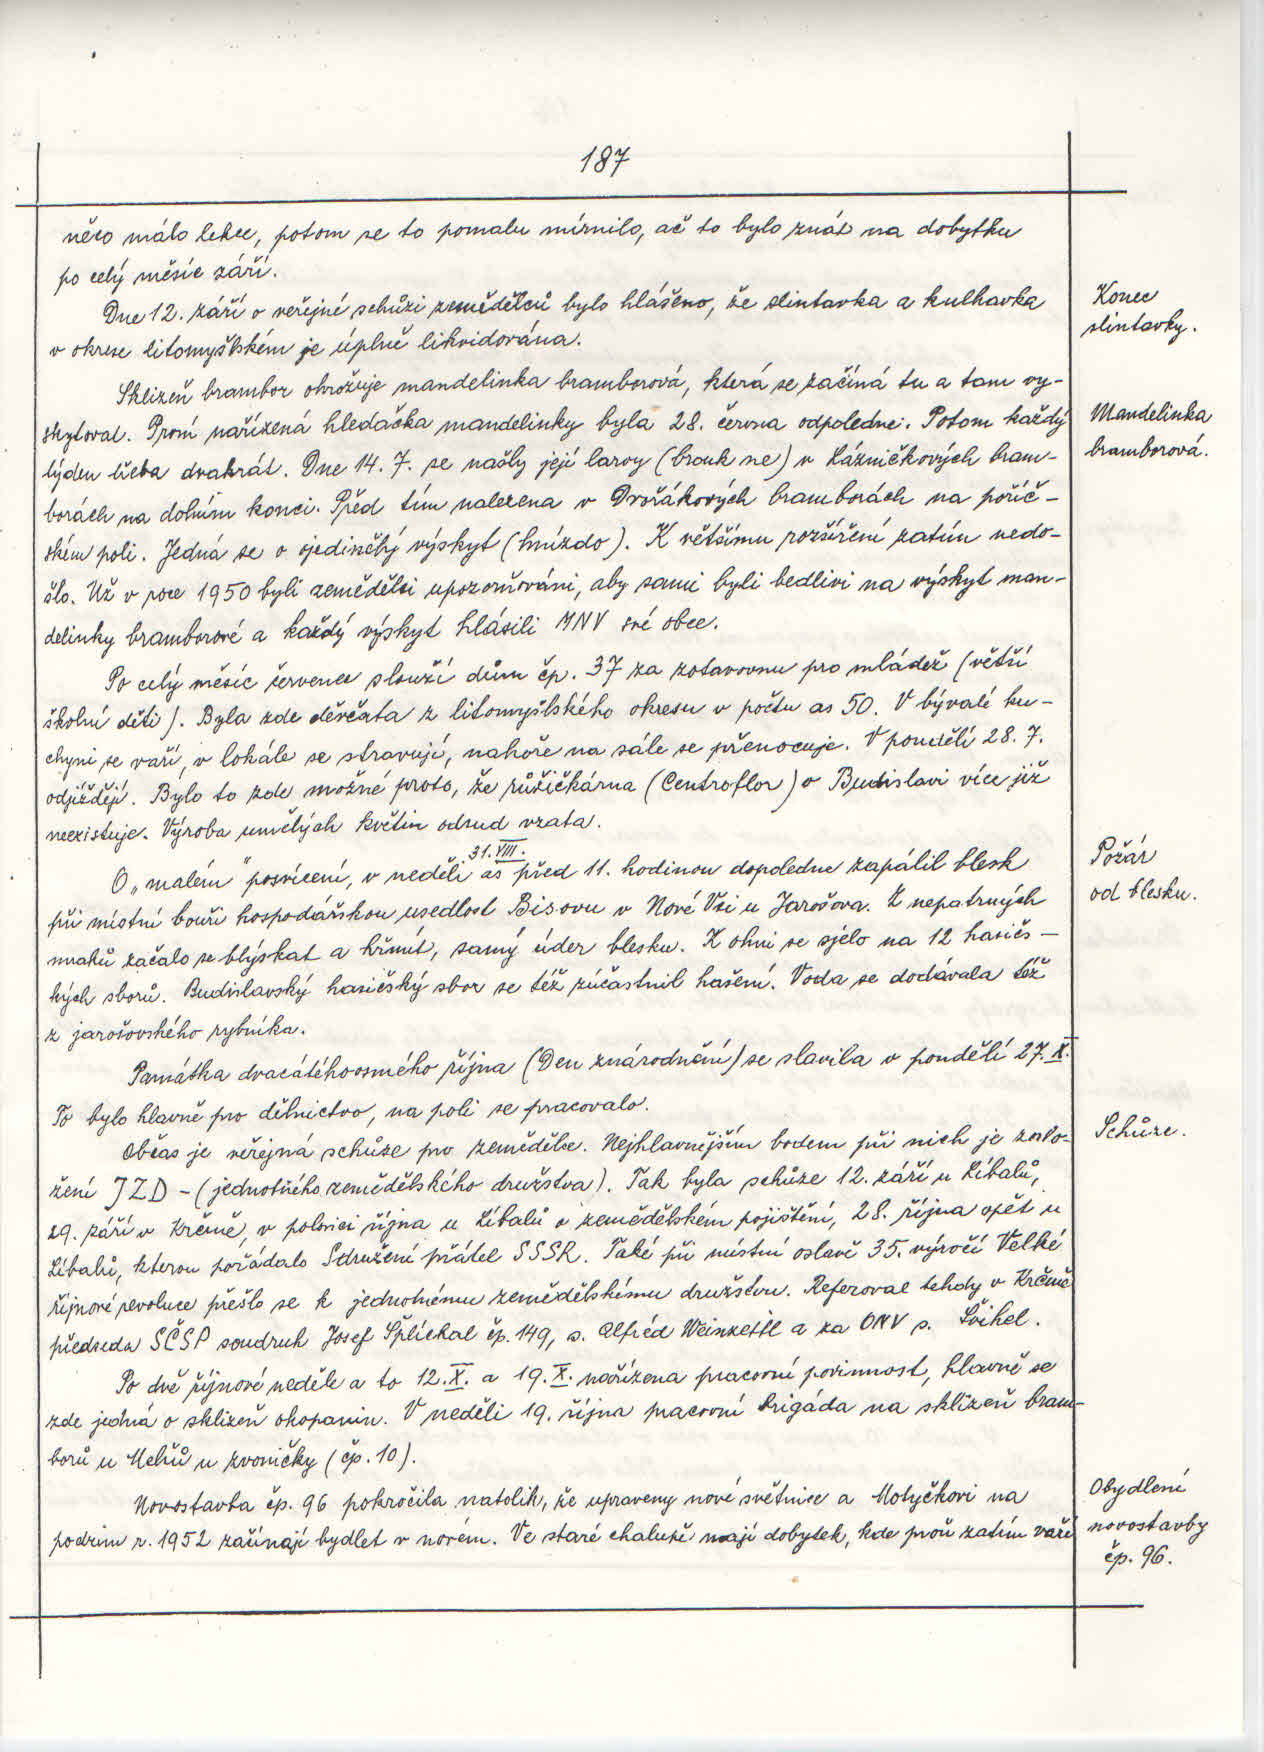 187
něco málo lehce, potom se to pomalu mírnilo, ač to bylo znát na dobytku
po celý měsíc září.
Dne 12. září o veřejné schůzi zemědělců bylo hlášeno, že slintavka a kulhavka
v okrese litomyšlském je úplně likvidována.
Konec
slintavky.
Sklizeň brambor ohrožuje mandelinka bramborová, která se začíná tu a tam vy-
skytovat. První nařízená hledačka mandelinky byla 28. června odpoledne. Potom každý
týden třeba dvakrát. Dne 14. 7. se našly její larvy (brouk ne) v Lázničkových bram-
borách na dolním konci. Před tím nalezena v Dvořákových bramborách na poříč-
ském poli. Jedná se o ojedinělý výskyt (hnízdo). K většímu rozšíření zatím nedo-
šlo. Už v roce 1950 byli zemědělci upozorňováni, aby sami byli bedlivi na výskyt man-
delinky bramborové a každý výskyt hlásili MNV své obce.
Mandelinka
bramborová.
Po celý měsíc červenec slouží dům čp. 37 za zotavovnu pro mládež (větší
školní děti). Byla zde děvčata z litomyšlského okresu v počtu as 50. V bývalé ku-
chyni se vaří, v lokále se stravují, nahoře na sále se přenocuje. V pondělí 28. 7.
odjíždějí. Bylo to zde možné proto, že růžičkárna (Centroflor) v Budislavi více již
neexistuje. Výroba umělých květin odsud vzata.
31. VIII.
O „malém" posvícení, v neděli as před 11. hodinou dopoledne zapálil blesk
při místní bouři hospodářskou usedlost Bisovu v Nové Vsi u Jarošova. Z nepatrných
mraků začalo se blýskat a hřmít, samý úder blesku. K ohni se sjelo na 12 hasič-
ských sborů. Budislavský hasičský sbor se též zúčastnil hašení. Voda se dodávala též
z jarošovského rybníka.
Požár
od blesku.
Památka dvacátéhoosmého října (Den znárodnění) se slavila v pondělí 27. X.
To bylo hlavně pro dělnictvo, na poli se pracovalo.
Občas je veřejná schůze pro zemědělce. Nejhlavnějším bodem při nich je zalo-
žení JZD - (jednotného zemědělského družstva). Tak byla schůze 12. září u Líbalů,
29. září v Krčmě, v polovici října u Líbalů o zemědělském pojištění, 28. října opět u
Líbalů, kterou pořádalo Sdružení přátel SSSR. Také při místní oslavě 35. výročí Velké
říjnové revoluce přešlo se k jednotnému zemědělskému družstvu. Referoval tehdy v Krčmě
předseda SČSP soudruh Josef Šplíchal čp. 149, s. Alfréd Weinzettl a za ONV s. Švihel.
Schůze.
Po dvě říjnové neděle a to 12. X. a 19. X. nařízena pracovní povinnost, hlavně se
zde jedná o sklizeň okopanin. V neděli 19. října pracovní brigáda na sklizeň bram-
borů u Mehů u zvoničky (čp. 10).
Novostavba čp. 96 pokročila natolik, že upraveny nové světnice a Motyčkovi na
podzim r. 1952 začínají bydlet v novém. Ve staré chalupě mají dobytek, kde proň zatím vaří
Obydlení
novostavby
čp. 96.